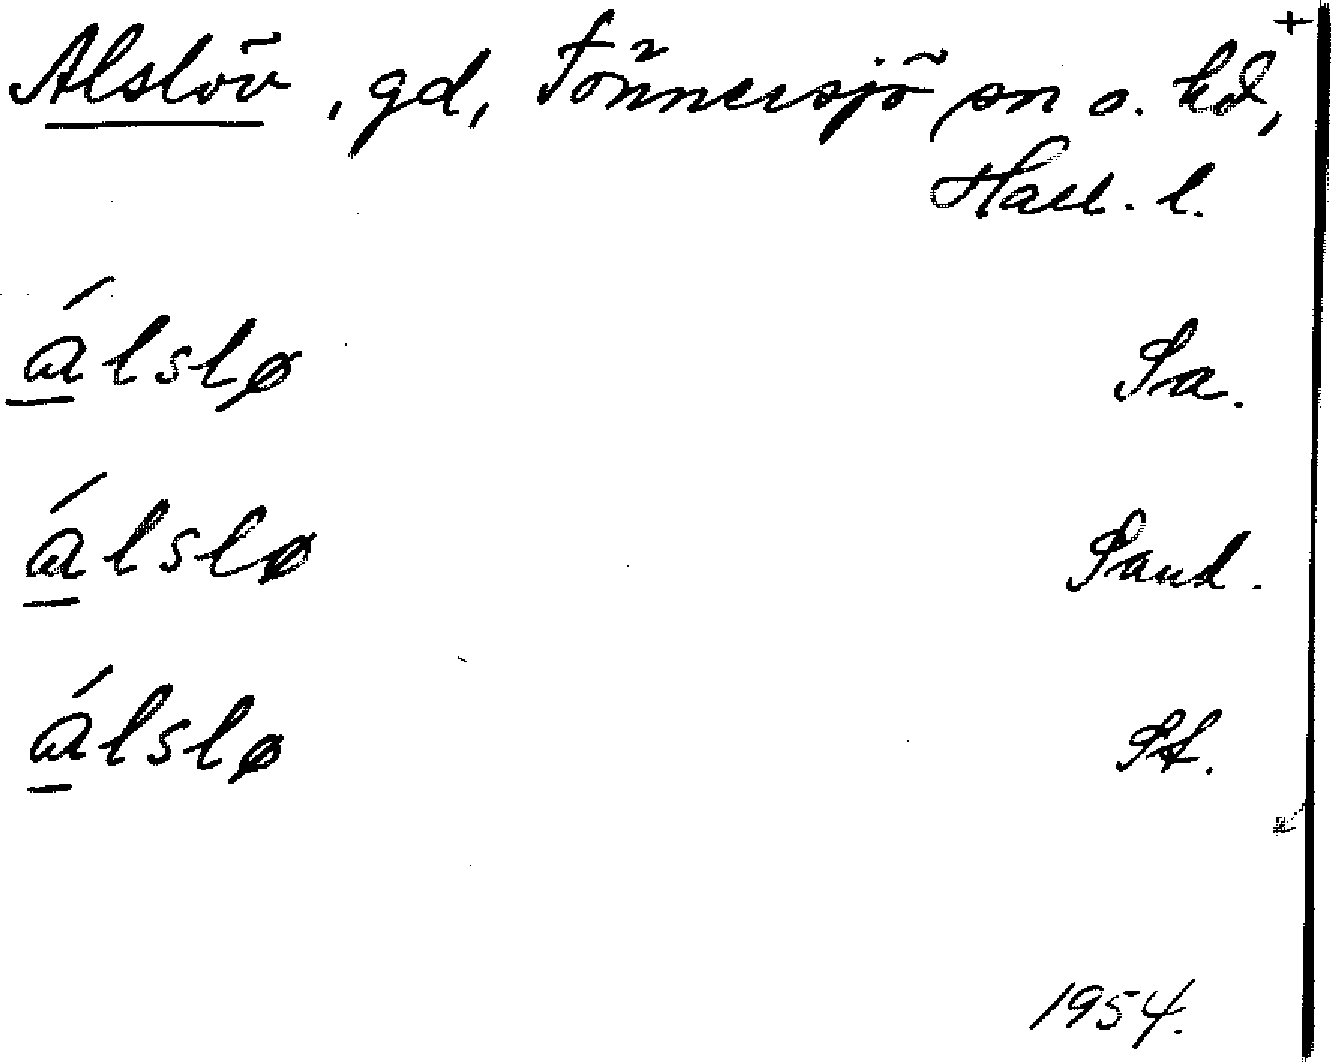 Alslöv, gd, Tönnersjö sn o. hd, +
Hall. l.
álslø Sa.
álslø Sand.
álslø St.
1954.